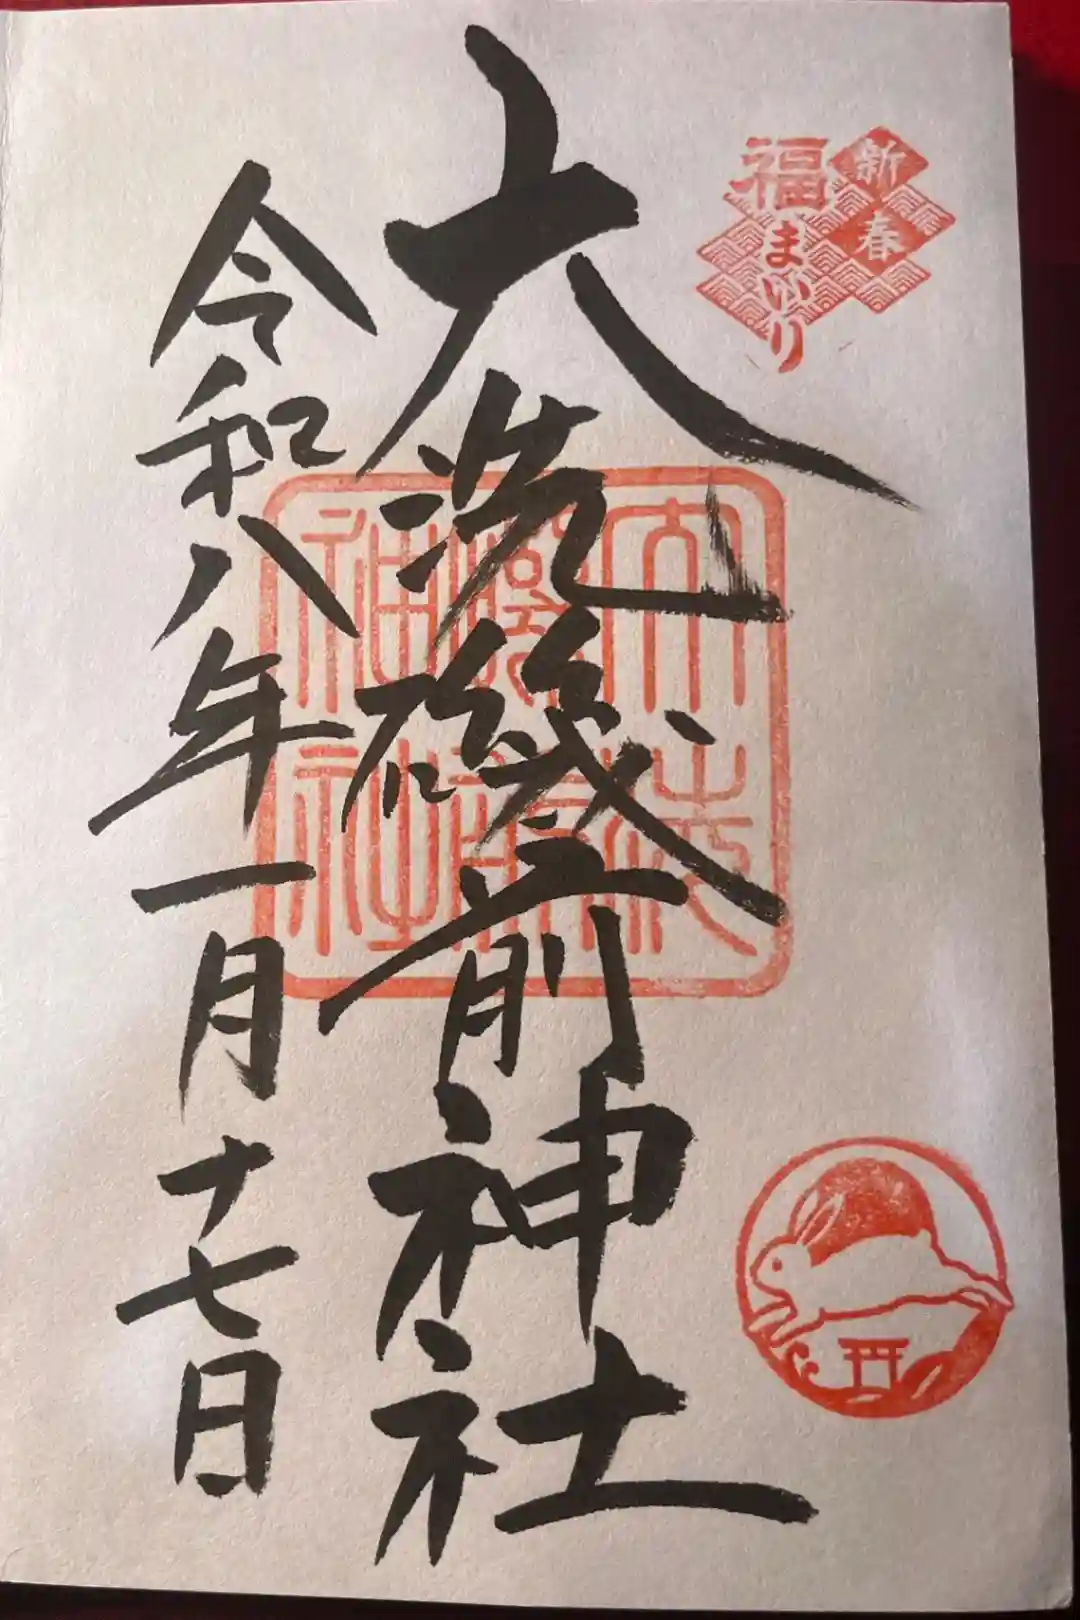 新春
福まいり
大洗磯前神社
大洗
磯前
神社
令和八年一月十七日